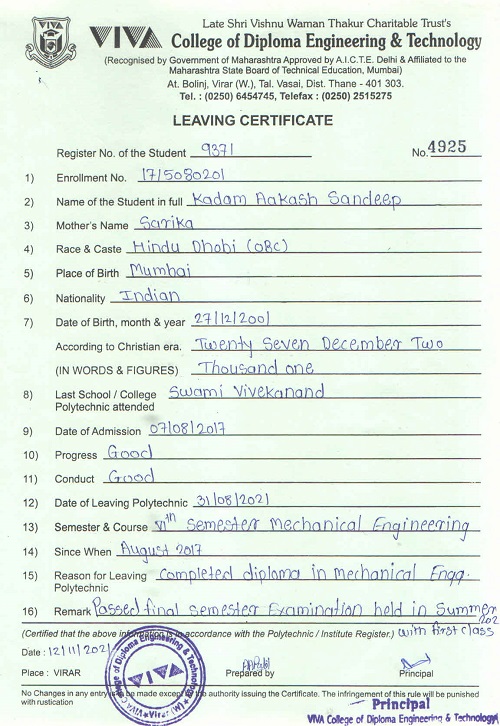 Late Shri Vishnu Waman Thakur Charitable Trust's
VIVA College of Diploma Engineering & Technology
(Recognised by Government of Maharashtra Approved by A.I.C.T.E. Delhi & Affiliated to the
Maharashtra State Board of Technical Education, Mumbai)
At. Bolinj, Virar (W.), Tal. Vasai, Dist. Thane - 401 303.
Tel. : (0250) 6454745, Telefax : (0250) 2515275
LEAVING CERTIFICATE
Register No. of the Student 9371 No. 4925
1) Enrollment No. 1715080201
2) Name of the Student in full Kadam Aakash Sandeep
3) Mother's Name Sarika
4) Race & Caste Hindu Dhobi (OBC)
5) Place of Birth Mumbai
6) Nationality Indian
7) Date of Birth, month & year 27/12/2001
According to Christian era. Twenty Seven December Two
(IN WORDS & FIGURES) Thousand one
8) Last School / College Swami Vivekanand
Polytechnic attended
9) Date of Admission 07/08/2017
10) Progress Good
11) Conduct Good
12) Date of Leaving Polytechnic 31/08/2021
13) Semester & Course VIth Semester Mechanical Engineering
14) Since When August 2017
15) Reason for Leaving Completed diploma in Mechanical Engg.
Polytechnic
16) Remark Passed final semester Examination held in Summer
(Certified that the above information is in accordance with the Polytechnic / Institute Register.) with first class
Date : 12/11/2021
Place : VIRAR Prepared by Principal
No Changes in any entry is to be made except by the authority issuing the Certificate. The infringement of this rule will be punished
with rustication
College of Diploma Engineering & Technology
VIVA
VIVA Virar (W)
Principal
VIVA College of Diploma Engineering & Technology